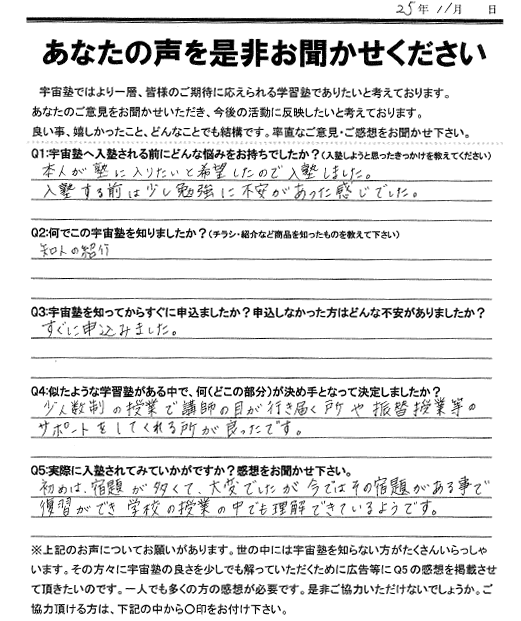 25年 11月 日
あなたの声を是非お聞かせください
宇宙塾ではより一層、皆様のご期待に応えられる学習塾でありたいと考えております。
あなたのご意見をお聞かせいただき、今後の活動に反映したいと考えております。
良い事、嬉しかったこと、どんなことでも結構です。率直なご意見・ご感想をお聞かせ下さい。
Q1:宇宙塾へ入塾される前にどんな悩みをお持ちでしたか？(入塾しようと思ったきっかけを教えてください)
本人が塾に入りたいと希望したので入塾しました。
入塾する前は少し勉強に不安があった感じでした。
Q2:何でこの宇宙塾を知りましたか？(チラシ・紹介など商品を知ったものを教えて下さい)
知人の紹介
Q3:宇宙塾を知ってからすぐに申込ましたか？申込しなかった方はどんな不安がありましたか？
すぐに申込みました。
Q4:似たような学習塾がある中で、何(どこの部分)が決め手となって決定しましたか？
少人数制の授業で講師の目が行き届く所や振替授業等の
サポートをしてくれる所が良ったです。
Q5:実際に入塾されてみていかがですか？感想をお聞かせ下さい。
初めは、宿題が多くて、大変でしたが今ではその宿題がある事で
復習ができ学校の授業の中でも理解できているようです。
※上記のお声についてお願いがあります。世の中には宇宙塾を知らない方がたくさんいらっしゃ
います。その方々に宇宙塾の良さを少しでも解っていただくために広告等にQ5の感想を掲載させ
て頂きたいのです。一人でも多くの方の感想が必要です。是非ご協力いただけないでしょうか。ご
協力頂ける方は、下記の中から〇印をお付け下さい。